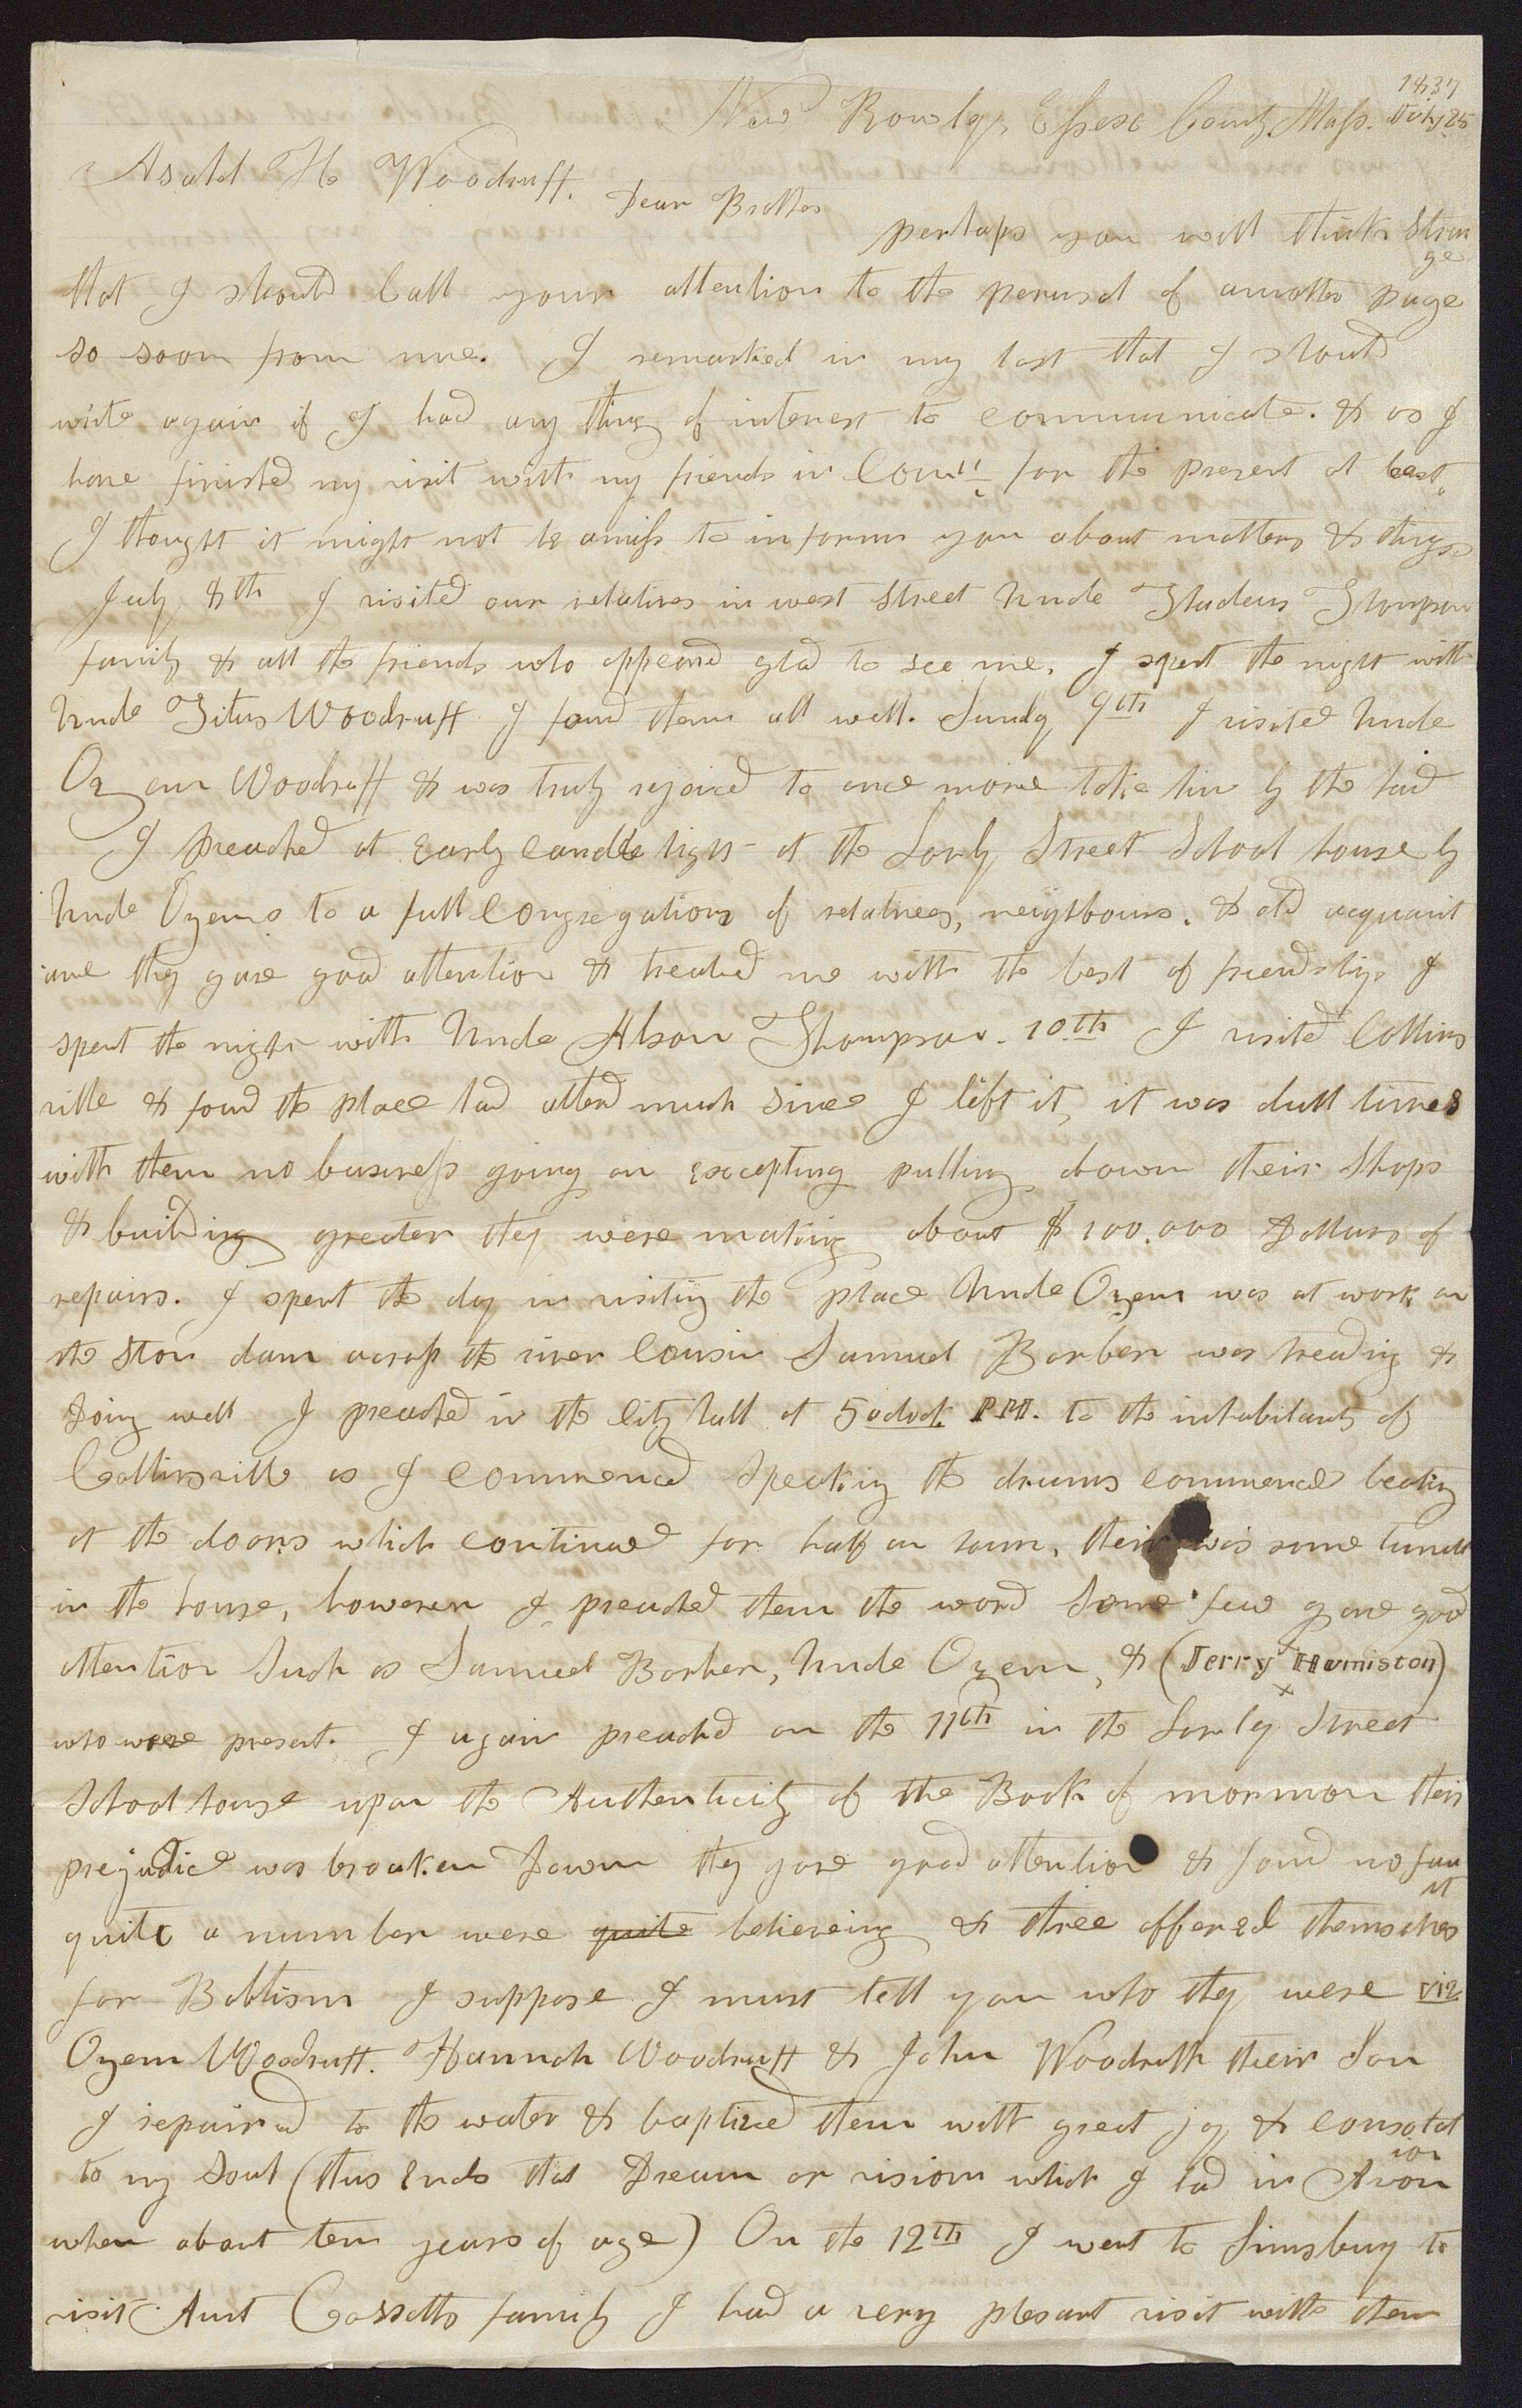 1837
New Rowley, Essex County, Mass. July 25
Asahel H Woodruff.
Dear Brother
perhaps you will think Stran
ge
that I should Call your attention to the perusal of another page
so soon from me. I remarked in my last that I should
write again if I had any thing of interest to communicate. & as I
have finished my visit with my friends in Conn for the present at least,
I thought it might not be amiss to inform you about matters & things
July 8th I visited our relatives in west Street Uncle Thadeus Thompson
family & all the friends who appeard glad to see me. I spent the night with
Uncle Titus Woodruff I found them all well. Sunday 9th I visited Uncle
Ozem Woodruff & was truly rejoiced to once more take him by the hand
I preached at Early candle light at the Lovly Street School house by
Uncle Ozems to a full congregation of relatives, neighbours, & old acquaint
ance they gave good attention & treated me with the best of friendship I
spent the night with Uncle Alson Thompson. 10th I visited Collins
ville & found the place had alterd much since I left it, it was dull times
with them no business going on excepting pulling down their Shops
& building greater they were making about $100.000 Dollars of
repairs. I spent the day in visiting the place Uncle Ozem was at work on
the Ston dam across the river Cousin Samuel Barber was trading &
Doing well I preached in the City hall at 5 oclock PM. to the inhabitants of
Collinsville as I commenced Speaking the drums commenced beating
at the doors which continued for half an hour, their was some tumult
in the house, however I preached them the word Some few gave good
attention Such as Samuel Barber, Uncle Ozem, & (Jerry Humiston)
x
who were present. I again preached on the 11th in the Lovly Street
School house upon the Authenticity of the Book of mormon their
prejudice was broaken Down they gave good attention & found no fau
lt
quite a number were quite believeing & three offered themselves
for Babtism I suppose I must tell you who they were viz
Ozem Woodruff. Hannah Woodruff & John Woodruff their Son
I repaired to the water & baptized them with great joy & consolat
ion
to my Soul (thus Ends that Dream or vision which I had in Avon
when about ten years of age) On the 12th I went to Simsbury to
visit Aunt Cossetts family I had a very plesant visit with them